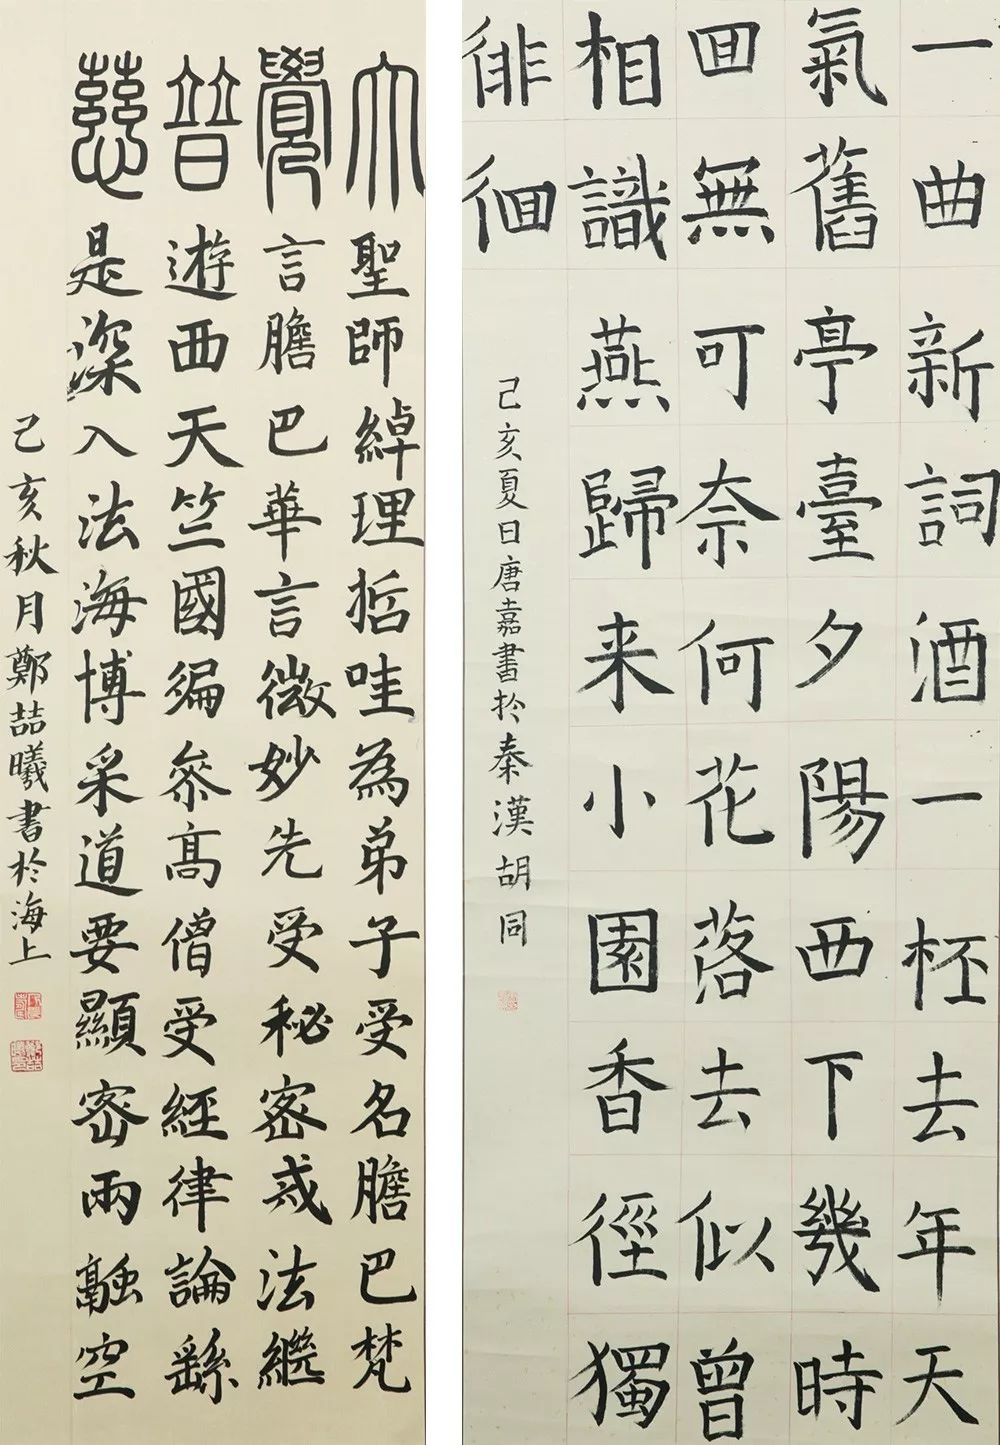 大覺普慈
聖師綽理哲哇為弟子受名膽巴梵
言膽巴華言微妙先受秘密戒法繼
遊西天竺國徧參高僧受經律論繇
是深入法海博采道要顯密兩融空
己亥秋月鄭喆曦書扵海上
一曲新詞酒一柸去年天
氣舊亭臺夕陽西下幾時
囬無可奈何花落去似曾
相識燕歸来小園香徑獨
徘徊
己亥夏日唐嘉書扵秦漢胡同